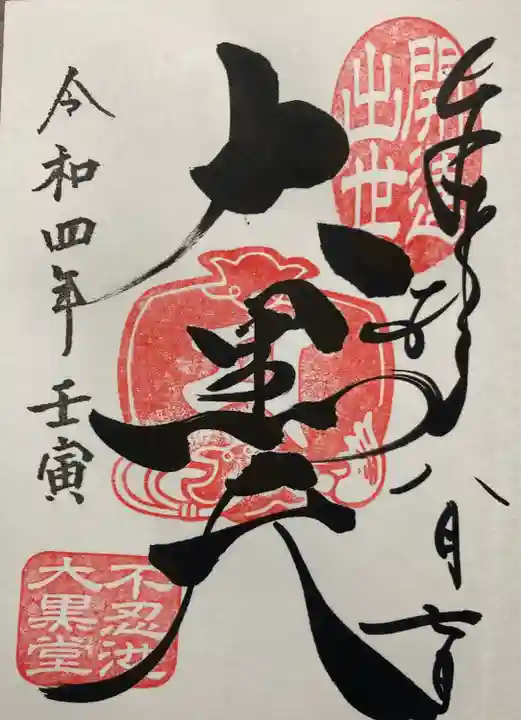 開運
出世
八月
大黒天
令和四年 壬寅
不忍池
大黒堂